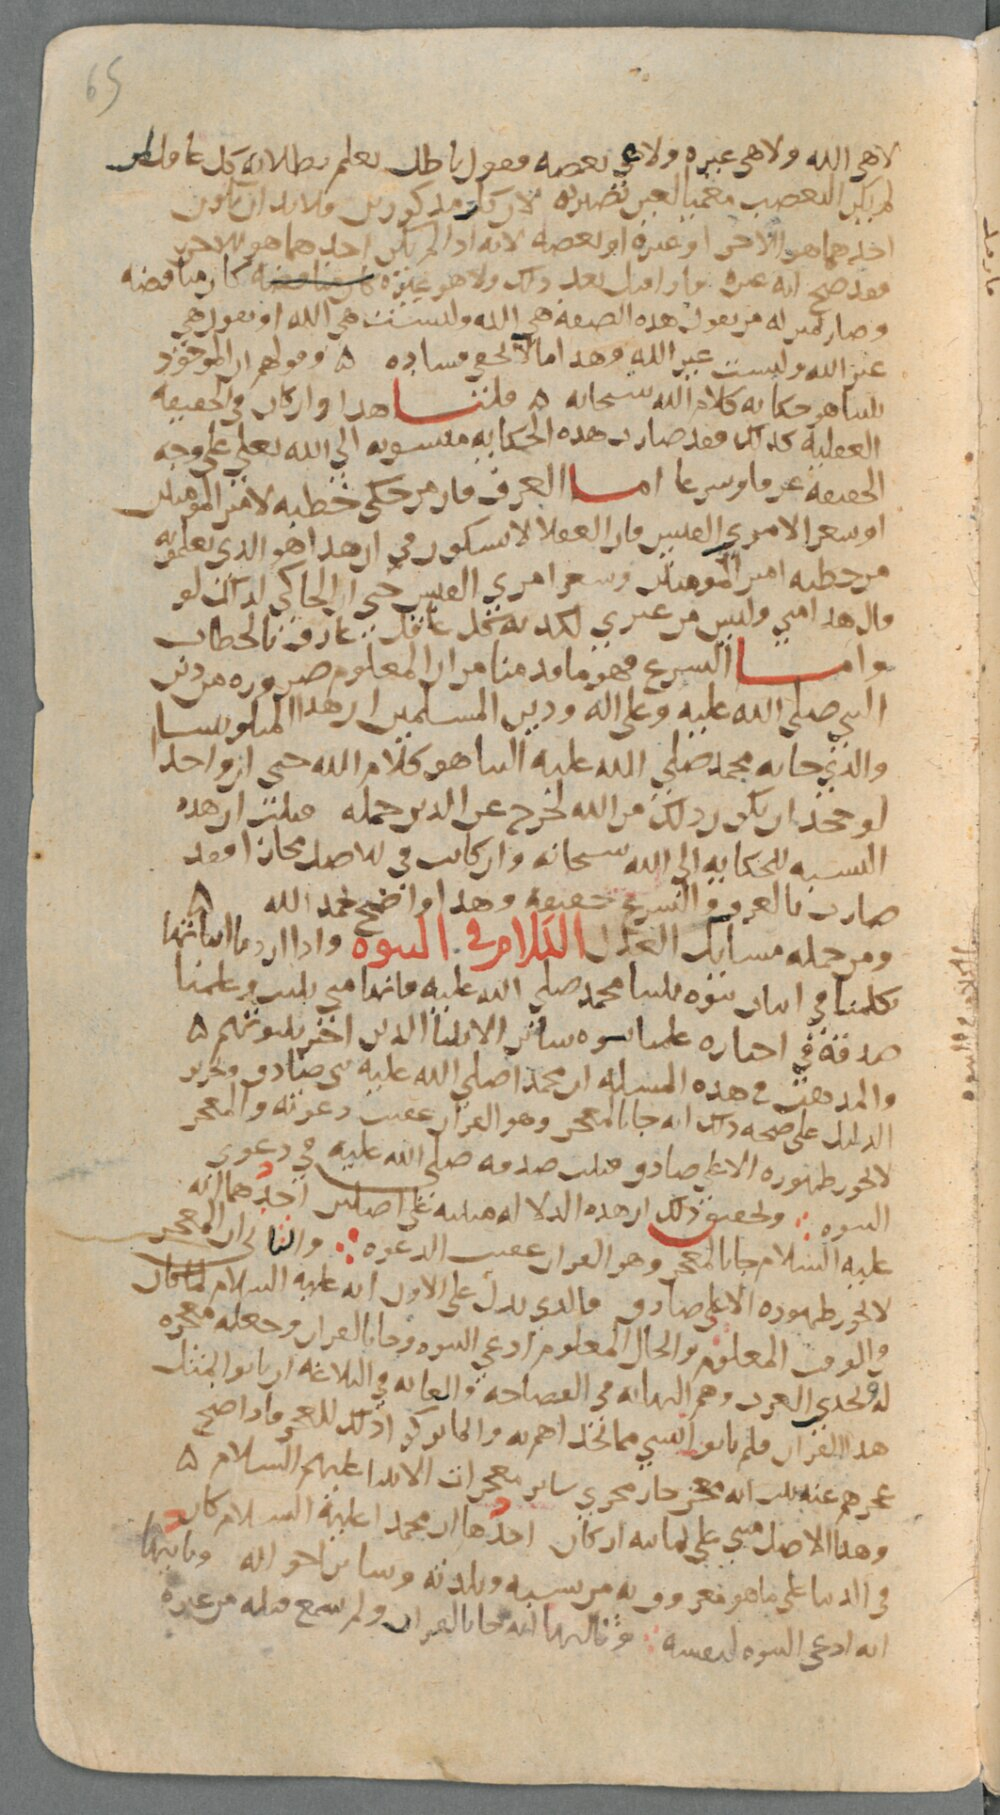 65
لا هي الله ولا هي غيره ولا هي بعضه فقول باطل يعلم بطلانه كل عاقل
لم يكن التعصب معميا لعين بصيرته لان كل مذكورين فلا بد ان يكون
احدهما هو الاخر او غيره او بعضه لانه اذا لم يكن احدهما هو الاخر
فقد صح انه غيره فان قيل بعد ذلك ولا هو غيره كان مناقضه
وصار كمن يقول هذه الصفه هي الله وليست هي الله او يقول هي
غير الله وليست غير الله وهذا مما لا يخفى فساده ۵ وقولهم ان الموجود
بيننا هو حكايه كلام الله سبحانه ۵ قلنا هذا وان كان في الحقيقه
العقليه كذلك فقد صارت هذه الحكايه منسوبه الى الله تعلى على وجه
الحقيقه عرفا وشرعا اما العرف فان من حكى خطبه لامير المومنين
او شعرا لامري القيس فان العقلا لا يشكون في ان هذا هو الذي يعلمونه
من خطبه امير المومنين وشعر امري القيس حتى ان الحاكي لذلك لو
قال هذا مني وليس من غيري لكذبه كل عاقل عارف بالخطاب
واما الشرع فهو ما قدمنا من ان المعلوم ضروره من دين
النبي صلى الله عليه وعلى اله ودين المسلمين ان هذا المتلو بيننا
والذي جا به محمد صلى الله عليه الينا هو كلام الله حتى ان واحدا
لو جحد ان يكون ذلك من الله لخرج عن الدين جمله فثبت ان هذه
النسبه للحكايه الى الله سبحانه وان كانت في الاصل مجازا فقد
صارت بالعرف والشرع حقيقه وهذا واضح بحمد الله ۵
ومن جمله مسايل العدل الكلام في النبوه واذا اردنا اثباتها
تكلمنا في اثبات نبوه نبينا محمد صلى الله عليه فانها متى ثبتت وعلمنا
صدقه في اخباره علمنا نبوه ساير الانبيا الذين اخبر بنبوتهم ۵
والمذهب في هذه المسله ان محمدا صلى الله عليه نبي صادق وتحرير
الدليل على صحه ذلك انه جا بالمعجز وهو القران عقيب دعوته والمعجز
لا يجوز ظهوره الا على صادق فثبت صدقه صلى الله عليه في دعوى
النبوه وتحقيق ذلك ان هذه الدلاله مبنيه على اصلين احدهما انه
عليه السلام جا بالمعجز وهو القران عقيب الدعوه والثاني ان المعجز
لا يجوز ظهوره الا على صادق فالذي يدل على الاول انه عليه السلام لما كان
في الوقت المعلوم والحال المعلوم ادعى النبوه وجا بالقران وجعله معجزه
له وتحدى العرب وهم النهايه في الفصاحه والغايه في البلاغه ان ياتوا بمثل
هذا القران فلم ياتوا بشي مما تحداهم به ذلك للعجز فاذا صح
عجزهم عنه ثبت انه معجز جار مجرى ساير معجزات الانبيا عليهم السلام ۵
وهذا الاصل مبني على ثمانيه اركان احدها ان محمدا عليه السلام كان
في الدنيا على ما هو معروف به من نسبه وبلدته وساير احواله وثانيها
انه ادعى النبوه لنفسه وثالثها انه جا بالقران ولم يسمع قبله من غيره
الكلام في النبوه